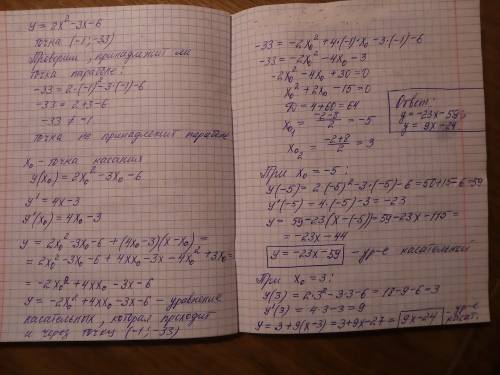 y = 2x² - 3x - 6
точка (-1; -33)
Проверим, принадлежит ли
точка параболе:
-33 = 2·(-1)² - 3·(-1) - 6
-33 = 2+3-6
-33 ≠ -1
точка не принадлежит параболе
x₀ - точка касания
y(x₀) = 2x₀² - 3x₀ - 6
y' = 4x - 3
y'(x₀) = 4x₀ - 3
y = 2x₀² - 3x₀ - 6 + (4x₀ - 3)(x - x₀) =
= 2x₀² - 3x₀ - 6 + 4xx₀ - 3x - 4x₀² + 3x₀ =
= -2x₀² + 4xx₀ - 3x - 6
y = -2x₀² + 4xx₀ - 3x - 6 - уравнение
касательных, которая проходит
и через точку (-1; -33)
-33 = -2x₀² + 4·(-1)·x₀ - 3·(-1) - 6
-33 = -2x₀² - 4x₀ - 3
-2x₀² - 4x₀ + 30 = 0
x₀² + 2x₀ - 15 = 0
D = 4 + 60 = 64
x₀₁ = (-2-8)/2 = -5
x₀₂ = (-2+8)/2 = 3
Ответ:
y = -23x - 59
y = 9x - 24
При x₀ = -5:
y(-5) = 2·(-5)² - 3·(-5) - 6 = 50 + 15 - 6 = 59
y'(-5) = 4·(-5) - 3 = -23
y = 59 - 23(x - (-5)) = 59 - 23x - 115 =
= -23x - 44
y = -23x - 59 - ур-е касательной
При x₀ = 3:
y(3) = 2·3² - 3·3 - 6 = 18 - 9 - 6 = 3
y'(3) = 4·3 - 3 = 9
y = 3 + 9(x - 3) = 3 + 9x - 27 = 9x - 24 ур-е касат.